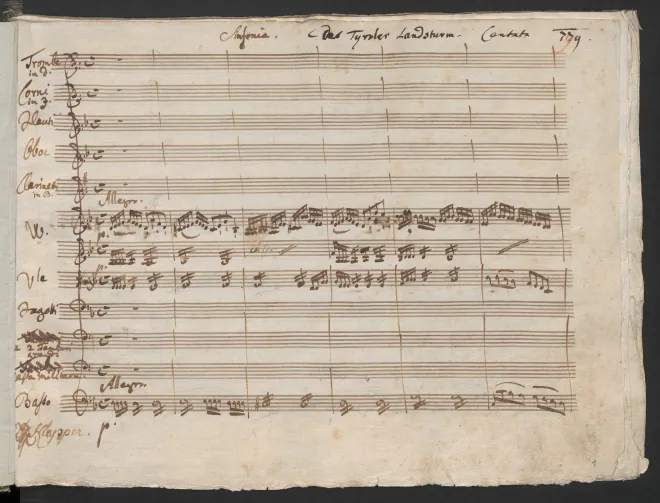 Sinfonia. Der Tyroler Landsturm. Cantate 779.
Trombe
in D.
Corni
in F.
Flauti
Oboe
Clarinetti
in B.
Allegro.
W.
p.
Vle
p.
Fagotti
2
grandi
Allegro.
Basso
Klapper. p.